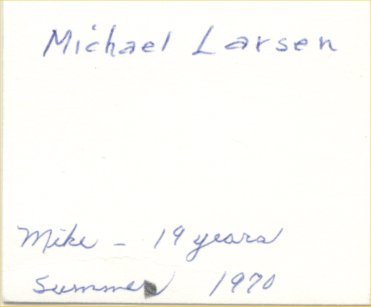 Michael Larsen
Mike - 19 years
Summer 1970